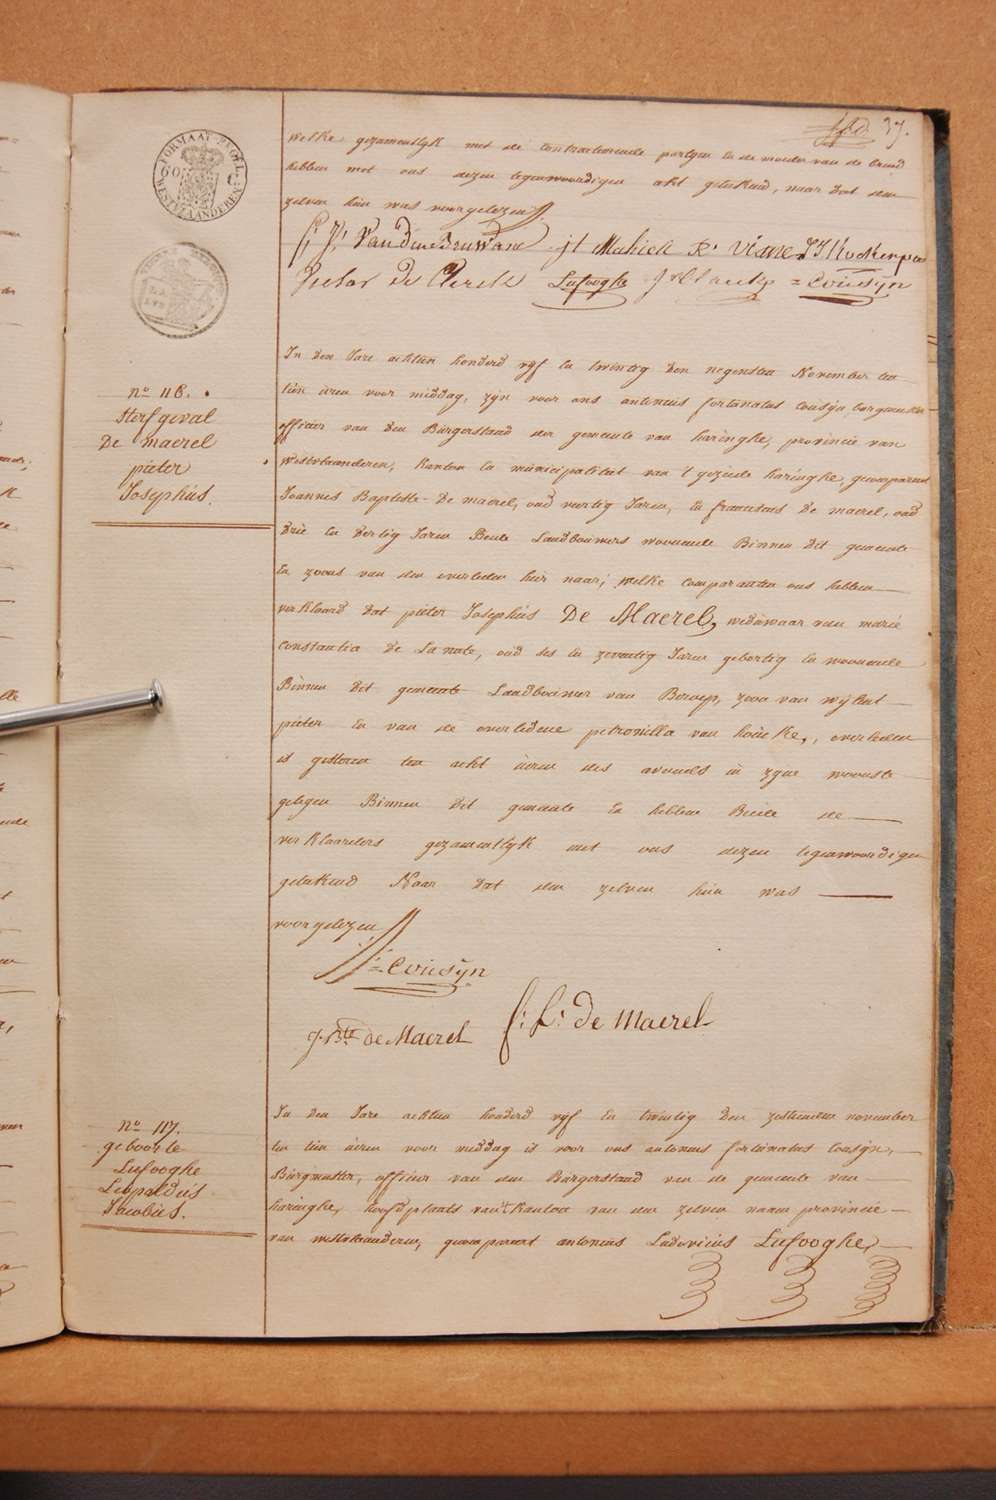 37.
FORMAAT ZEGEL
WESTVLAANDEREN
60 C
welke gezamentlijk met de contracterende partijen en de moeder van de bruid
hebben met ons dezen tegenwoordigen akt geteekend, naar dat den
zelven hun was voorgelezen
jt Mahieu
Victor De Clerck Lefooghe = Cousyn
no 116.
Sterfgeval
De maerel
pieter
Josephus.
In den Jare achtien honderd vijf en twintig den negensten November ten
tien uren voor middag, zijn voor ons antonius fortunatus cousijn, burgmeester
officier van den Burgerstaad der gemeente van haringhe, provincie van
Westvlaanderen, kanton en municipaliteit van 't gezeide haringhe, gecompareert
Joannes Baptiste De maerel, oud veertig Jaren, en franciscus De maerel, oud
drie en dertig Jaren Beide Landbouwers woonende Binnen dit gemeente
en zoons van den overleden hier naar; welke comparanten ons hebben
verklaard dat pieter Josephus De Maerel, weduwaar van marie
Constantia De La note, oud ses en zeventig Jaren geboortig en woonende
Binnen dit gemeente Landbouwer van Beroep, zoon van wijlent
pieter en van de overledene petronilla van houcke, overleden
is gisteren ten acht uren des avonds in zijne woonste
gelegen Binnen dit gemeente en hebben Beide de
verklaarders gezamentlijk met ons dezen tegenwoordigen
geteekend Naar dat den zelven hun was
voorgelezen
= Cousyn
J. Bte de Maerel f: L: de Maerel
no 117.
geboorte
Lefooghe
Leopoldus
Jacobus.
In den Jare achtien honderd vijf en twintig den zesthienden november
ten tien uren voor middag is voor ons antonius fortunatus cousijn,
Burgmeester, officier van den Burgerstaad van de gemeente van
haringhe, hoofdplaats van 't kanton van den zelven naam provincie
van westvlaanderen, gecompareert antonius Ludovicus Lefooghe,